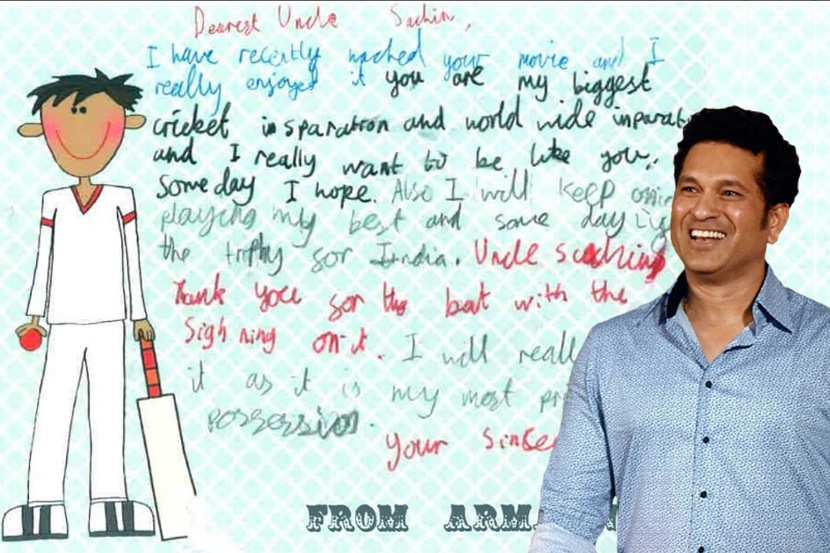 Dearest Uncle Sachin,
I have recently wached your movie and I
really enjoyed it you are my biggest
cricket insparation and world wide
and I really want to be like you,
Some day I hope. Also I will keep
playing my best and some day
the trophy for India. Uncle
Thank you for the bat with the
Sighning on it. I will
it as it is my most
possession.
your
FROM